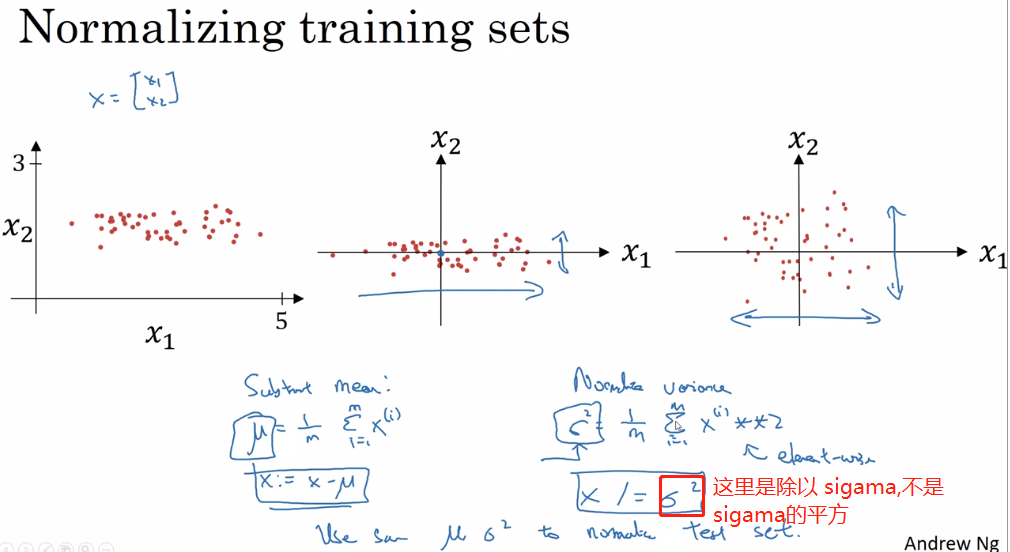 Normalizing training sets
x = [x₁ x₂]
3
x₂
5
x₁
x₂
x₁
x₂
x₁
Subtract mean:
μ = 1/m Σᵢ₌₁ᵐ x⁽ⁱ⁾
x := x - μ
Normalize variance
σ² = 1/m Σᵢ₌₁ᵐ x⁽ⁱ⁾ ** 2
element-wise
x /= σ²
这里是除以 sigama,不是
sigama的平方
Use same μ σ² to normalize test set.
Andrew Ng